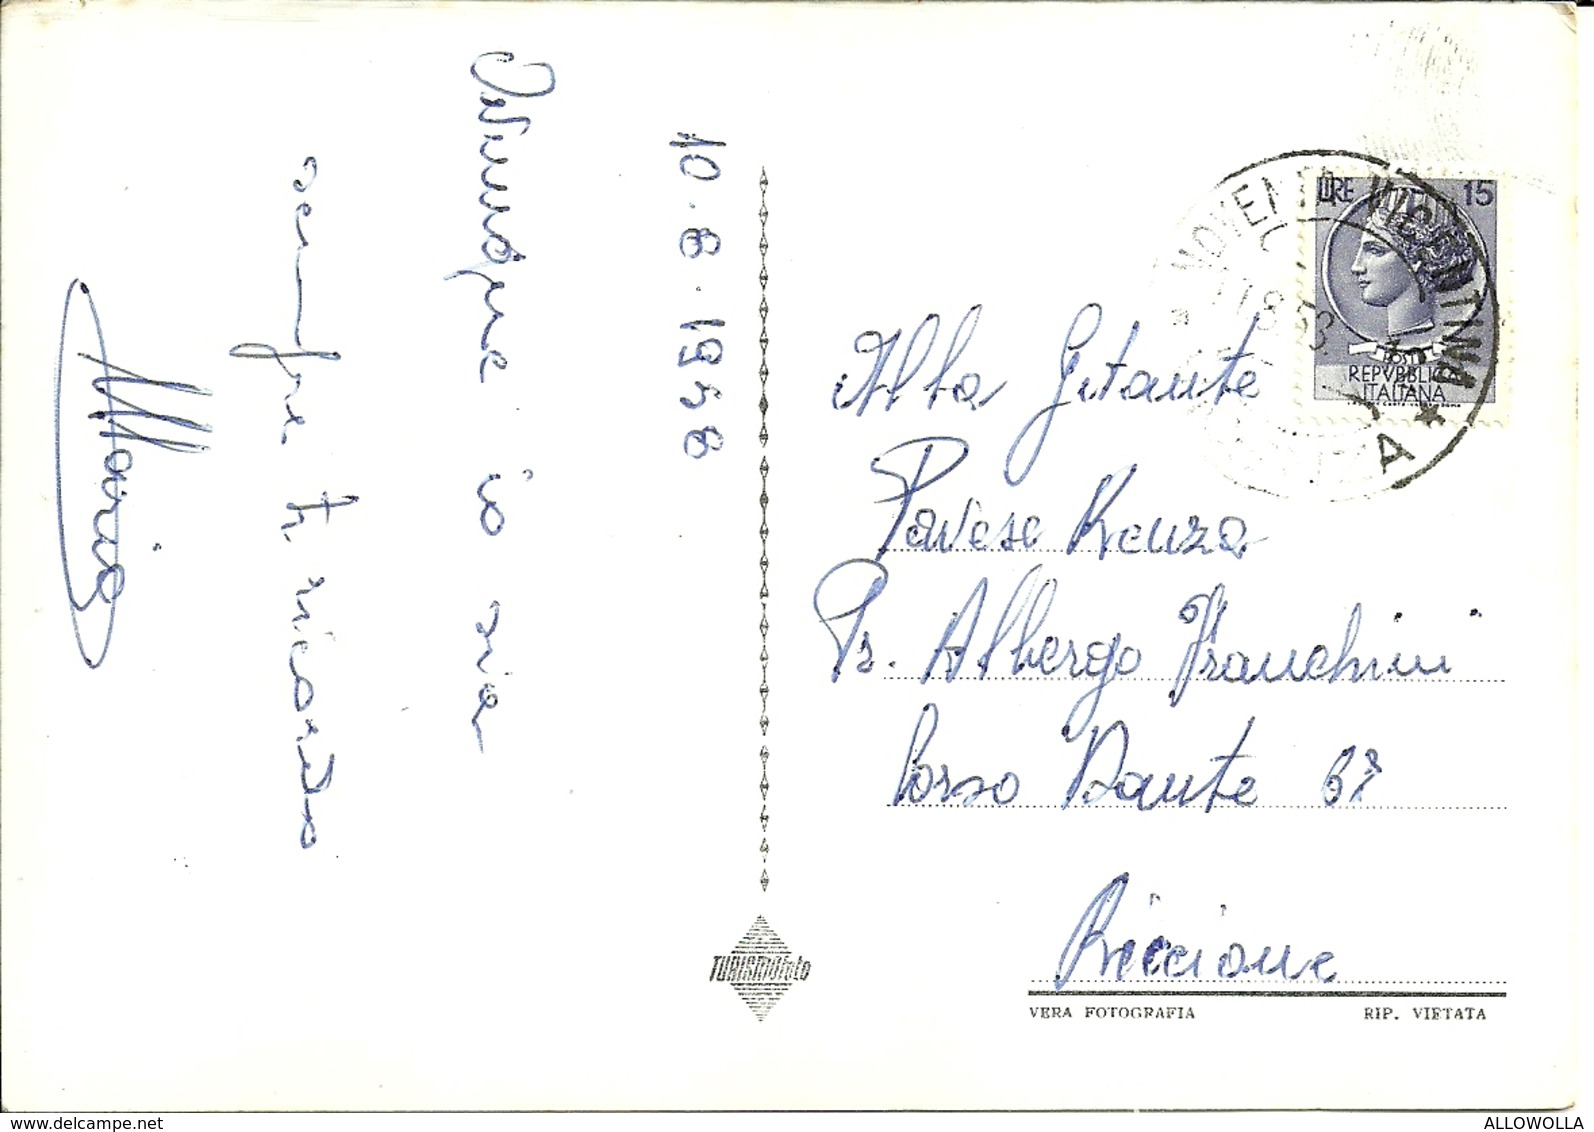 10.8.1958
Ovunque io sia
sempre ti ricordo
Mario
LIRE 15
POSTE
REPVBBLICA
ITALIANA
NOVENTA VICENTINA
A
Alla Gitante
Pavese Renza
Pr. Albergo Franchini
Corso Dante 67
Riccione
TURISMOfoto
VERA FOTOGRAFIA
RIP. VIETATA
delcampe.net
ALLOWOLLA